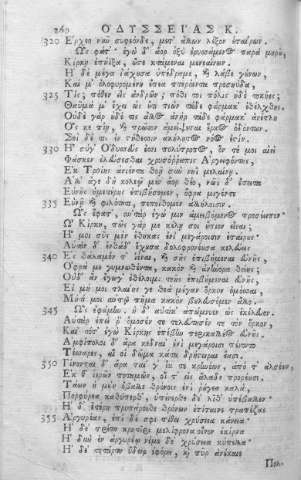 260 ΟΔΥΣΣΕΙΑΣ Κ.
320 Ἔρχεο νῦν συφεόνδε, μετ' ἄλλων λέξεο ἑταίρων.
Ὣς φάτ'· ἐγὼ δ' ἄορ ὀξὺ ἐρυσσάμενος παρὰ μηροῦ,
Κίρκῃ ἐπήϊξα, ὥστε κτάμεναι μενεαίνων.
Ἡ δὲ μέγα ἰάχουσα ὑπέδραμε, καὶ λάβε γούνων,
Καί μ' ὀλοφυρομένη ἔπεα πτερόεντα προσηύδα·
325 Τίς, πόθεν εἰς ἀνδρῶν; πόθι τοι πόλις ἠδὲ τοκῆες;
Θαῦμά μ' ἔχει ὡς οὔτι πιὼν τάδε φάρμακ' ἐθέλχθης.
Οὐδὲ γὰρ οὐδέ τις ἄλλος ἀνὴρ τάδε φάρμακ' ἀνέτλη
Ὅς κε πίῃ, καὶ πρῶτον ἀμείψεται ἕρκος ὀδόντων.
Σοὶ δέ τις ἐν στήθεσσιν ἀκήλητος νόος ἐστίν.
330 Ἦ σύγ' Ὀδυσσεύς ἐσσι πολύτροπος, ὅν τέ μοι αἰεὶ
Φάσκεν ἐλεύσεσθαι χρυσόρραπις Ἀργειφόντης,
Ἐκ Τροίης ἀνιόντα θοῇ σὺν νηῒ μελαίνῃ.
Ἀλλ' ἄγε δὴ κολεῷ μὲν ἄορ θέο, νῶϊ δ' ἔπειτα
Εὐνῆς ἡμετέρης ἐπιβήομεν, ὄφρα μιγέντε
335 Εὐνῇ καὶ φιλότητι, πεποίθομεν ἀλλήλοισιν.
Ὣς ἔφατ', αὐτὰρ ἐγώ μιν ἀμειβόμενος προσέειπον·
Ὦ Κίρκη, πῶς γάρ με κέλῃ σοὶ ἤπιον εἶναι;
Ἥ μοι σῦς μὲν ἔθηκας ἐνὶ μεγάροισιν ἑταίρους,
Αὐτὸν δ' ἐνθάδ' ἔχουσα δολοφρονέουσα κελεύεις
340 Ἐς θάλαμόν τ' ἰέναι, καὶ σῆς ἐπιβήμεναι εὐνῆς,
Ὄφρα με γυμνωθέντα, κακὸν καὶ ἀνήνορα θείης·
Οὐδ' ἂν ἔγωγ' ἐθέλοιμι τεῆς ἐπιβήμεναι εὐνῆς,
Εἰ μή μοι τλαίης γε θεὰ μέγαν ὅρκον ὀμόσσαι,
Μήτι μοι αὐτῷ πῆμα κακὸν βουλευσέμεν ἄλλο.
345 Ὣς ἐφάμην, ἡ δ' αὐτίκ' ἀπώμνυεν ὡς ἐκέλευον.
Αὐτὰρ ἐπεί ῥ' ὄμοσέν τε τελεύτησέν τε τὸν ὅρκον,
Καὶ τότ' ἐγὼ Κίρκης ἐπέβην περικαλλέος εὐνῆς.
Ἀμφίπολοι δ' ἄρα κεδναὶ ἐνὶ μεγάροισι πένοντο
Τέσσαρες, αἵ οἱ δῶμα κάτα δρήστειραι ἔασι.
350 Γίνονται δ' ἄρα ταί γ' ἔκ τε κρηνέων, ἀπό τ' ἀλσέων,
Ἔκ θ' ἱερῶν ποταμῶν, οἵ τ' εἰς ἅλαδε προρέουσι.
Τάων ἡ μὲν ἔβαλλε θρόνοις ἔνι ῥήγεα καλὰ
Πορφύρεα καθύπερθ', ὑπένερθε δὲ λῖθ' ὑπέβαλλεν·
Ἡ δ' ἑτέρη προπάροιθε θρόνων ἐτίταινε τραπέζας
355 Ἀργυρέας, ἐπὶ δέ σφι τίθει χρύσεια κάνεια·
Ἡ δὲ τρίτη κρητῆρι μελίφρονα οἶνον ἐκίρνα
Ἡδὺν ἐν ἀργυρέῳ, νέμε δὲ χρύσεια κύπελλα·
Ἡ δὲ τετάρτη ὕδωρ ἐφόρει, καὶ πῦρ ἀνέκαιε
Πολ-